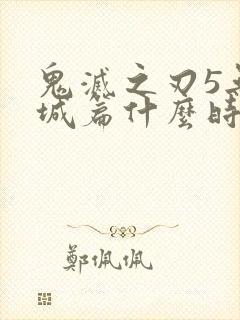 鬼滅之刃5
城篇什麼時
鄭佩佩